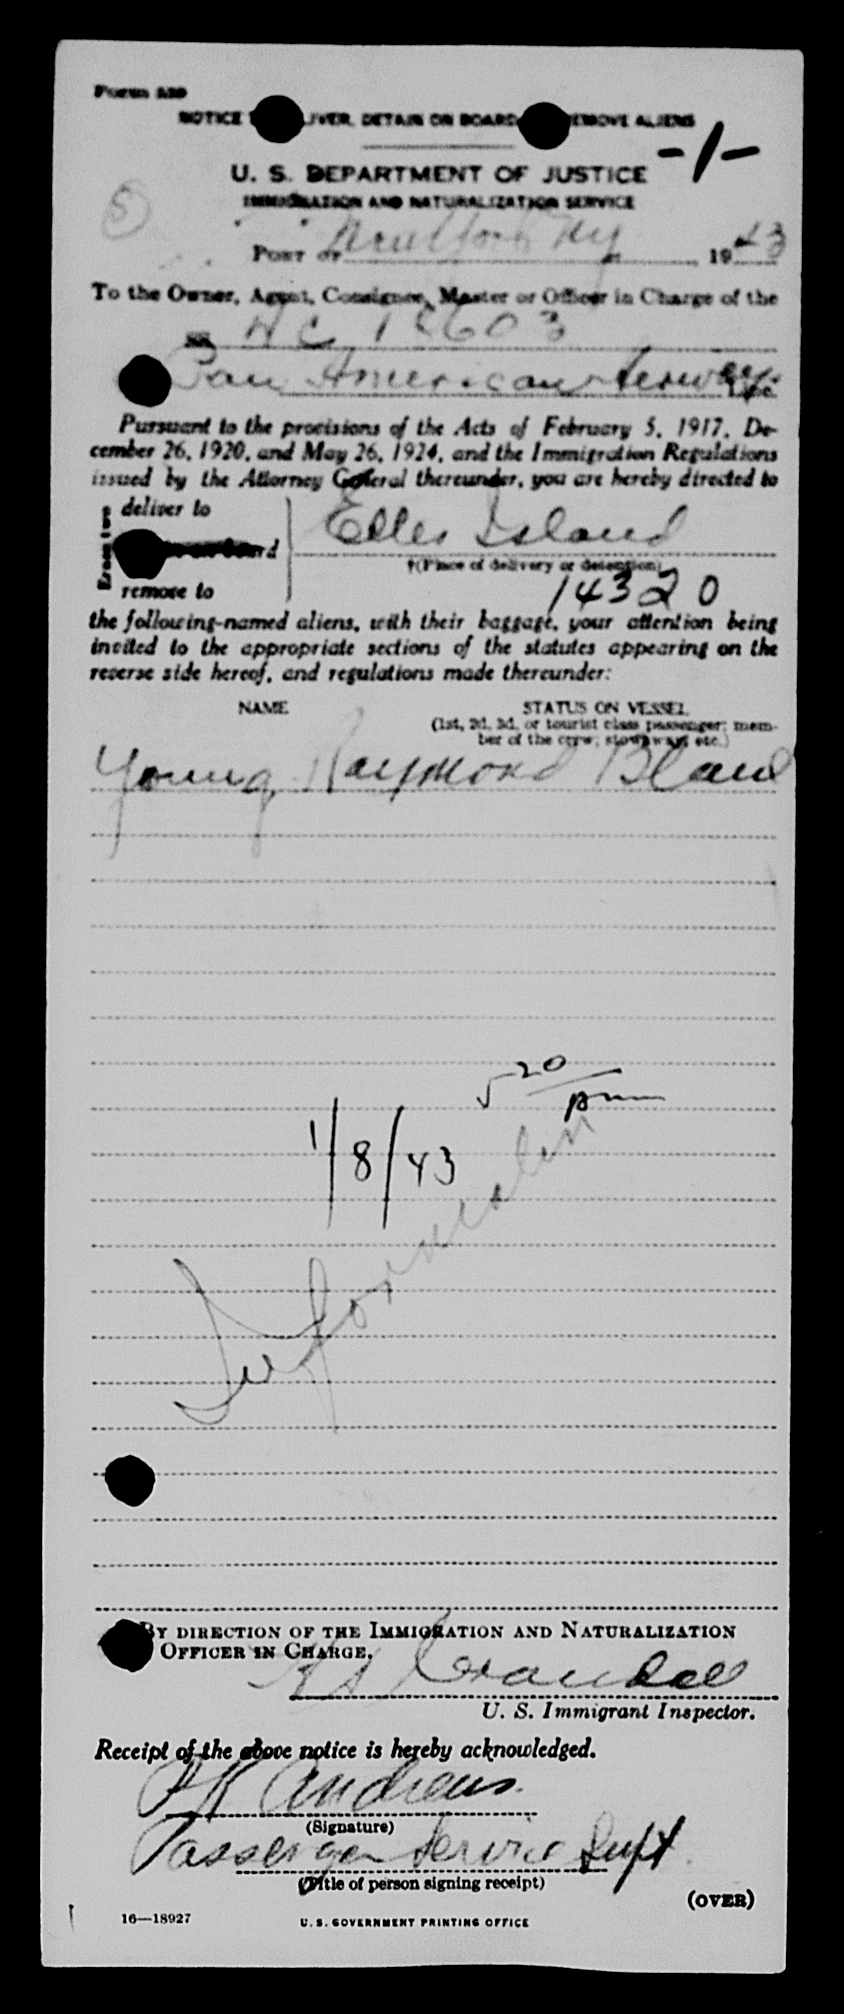 Form 539
NOTICE LIVER, DETAIN ON BOARD REMOVE ALIENS
-1-
U. S. DEPARTMENT OF JUSTICE
IMMIGRATION AND NATURALIZATION SERVICE
5
PORT OF New York NY 1943
To the Owner, Agent, Consignee, Master or Officer in Charge of the
SS NC 18603
Pan American Airways
Pursuant to the provisions of the Acts of February 5, 1917, De-
cember 26, 1920, and May 26, 1924, and the Immigration Regulations
issued by the Attorney General thereunder, you are hereby directed to
deliver to
Ellis Island
†(Place of delivery or detention)
remove to
14320
the following-named aliens, with their baggage, your attention being
invited to the appropriate sections of the statutes appearing on the
reverse side hereof, and regulations made thereunder:
NAME STATUS ON VESSEL
(1st, 2d, 3d, or tourist class passenger; mem-
ber of the crew; stowaway, etc.)
Young, Raymond Bland
5 20 pm
1/8/43
BY DIRECTION OF THE IMMIGRATION AND NATURALIZATION
OFFICER IN CHARGE,
Crandall
U. S. Immigrant Inspector.
Receipt of the above notice is hereby acknowledged.
Andrews
(Signature)
Passenger Service Supt
(Title of person signing receipt)
(OVER)
16—18927 U. S. GOVERNMENT PRINTING OFFICE